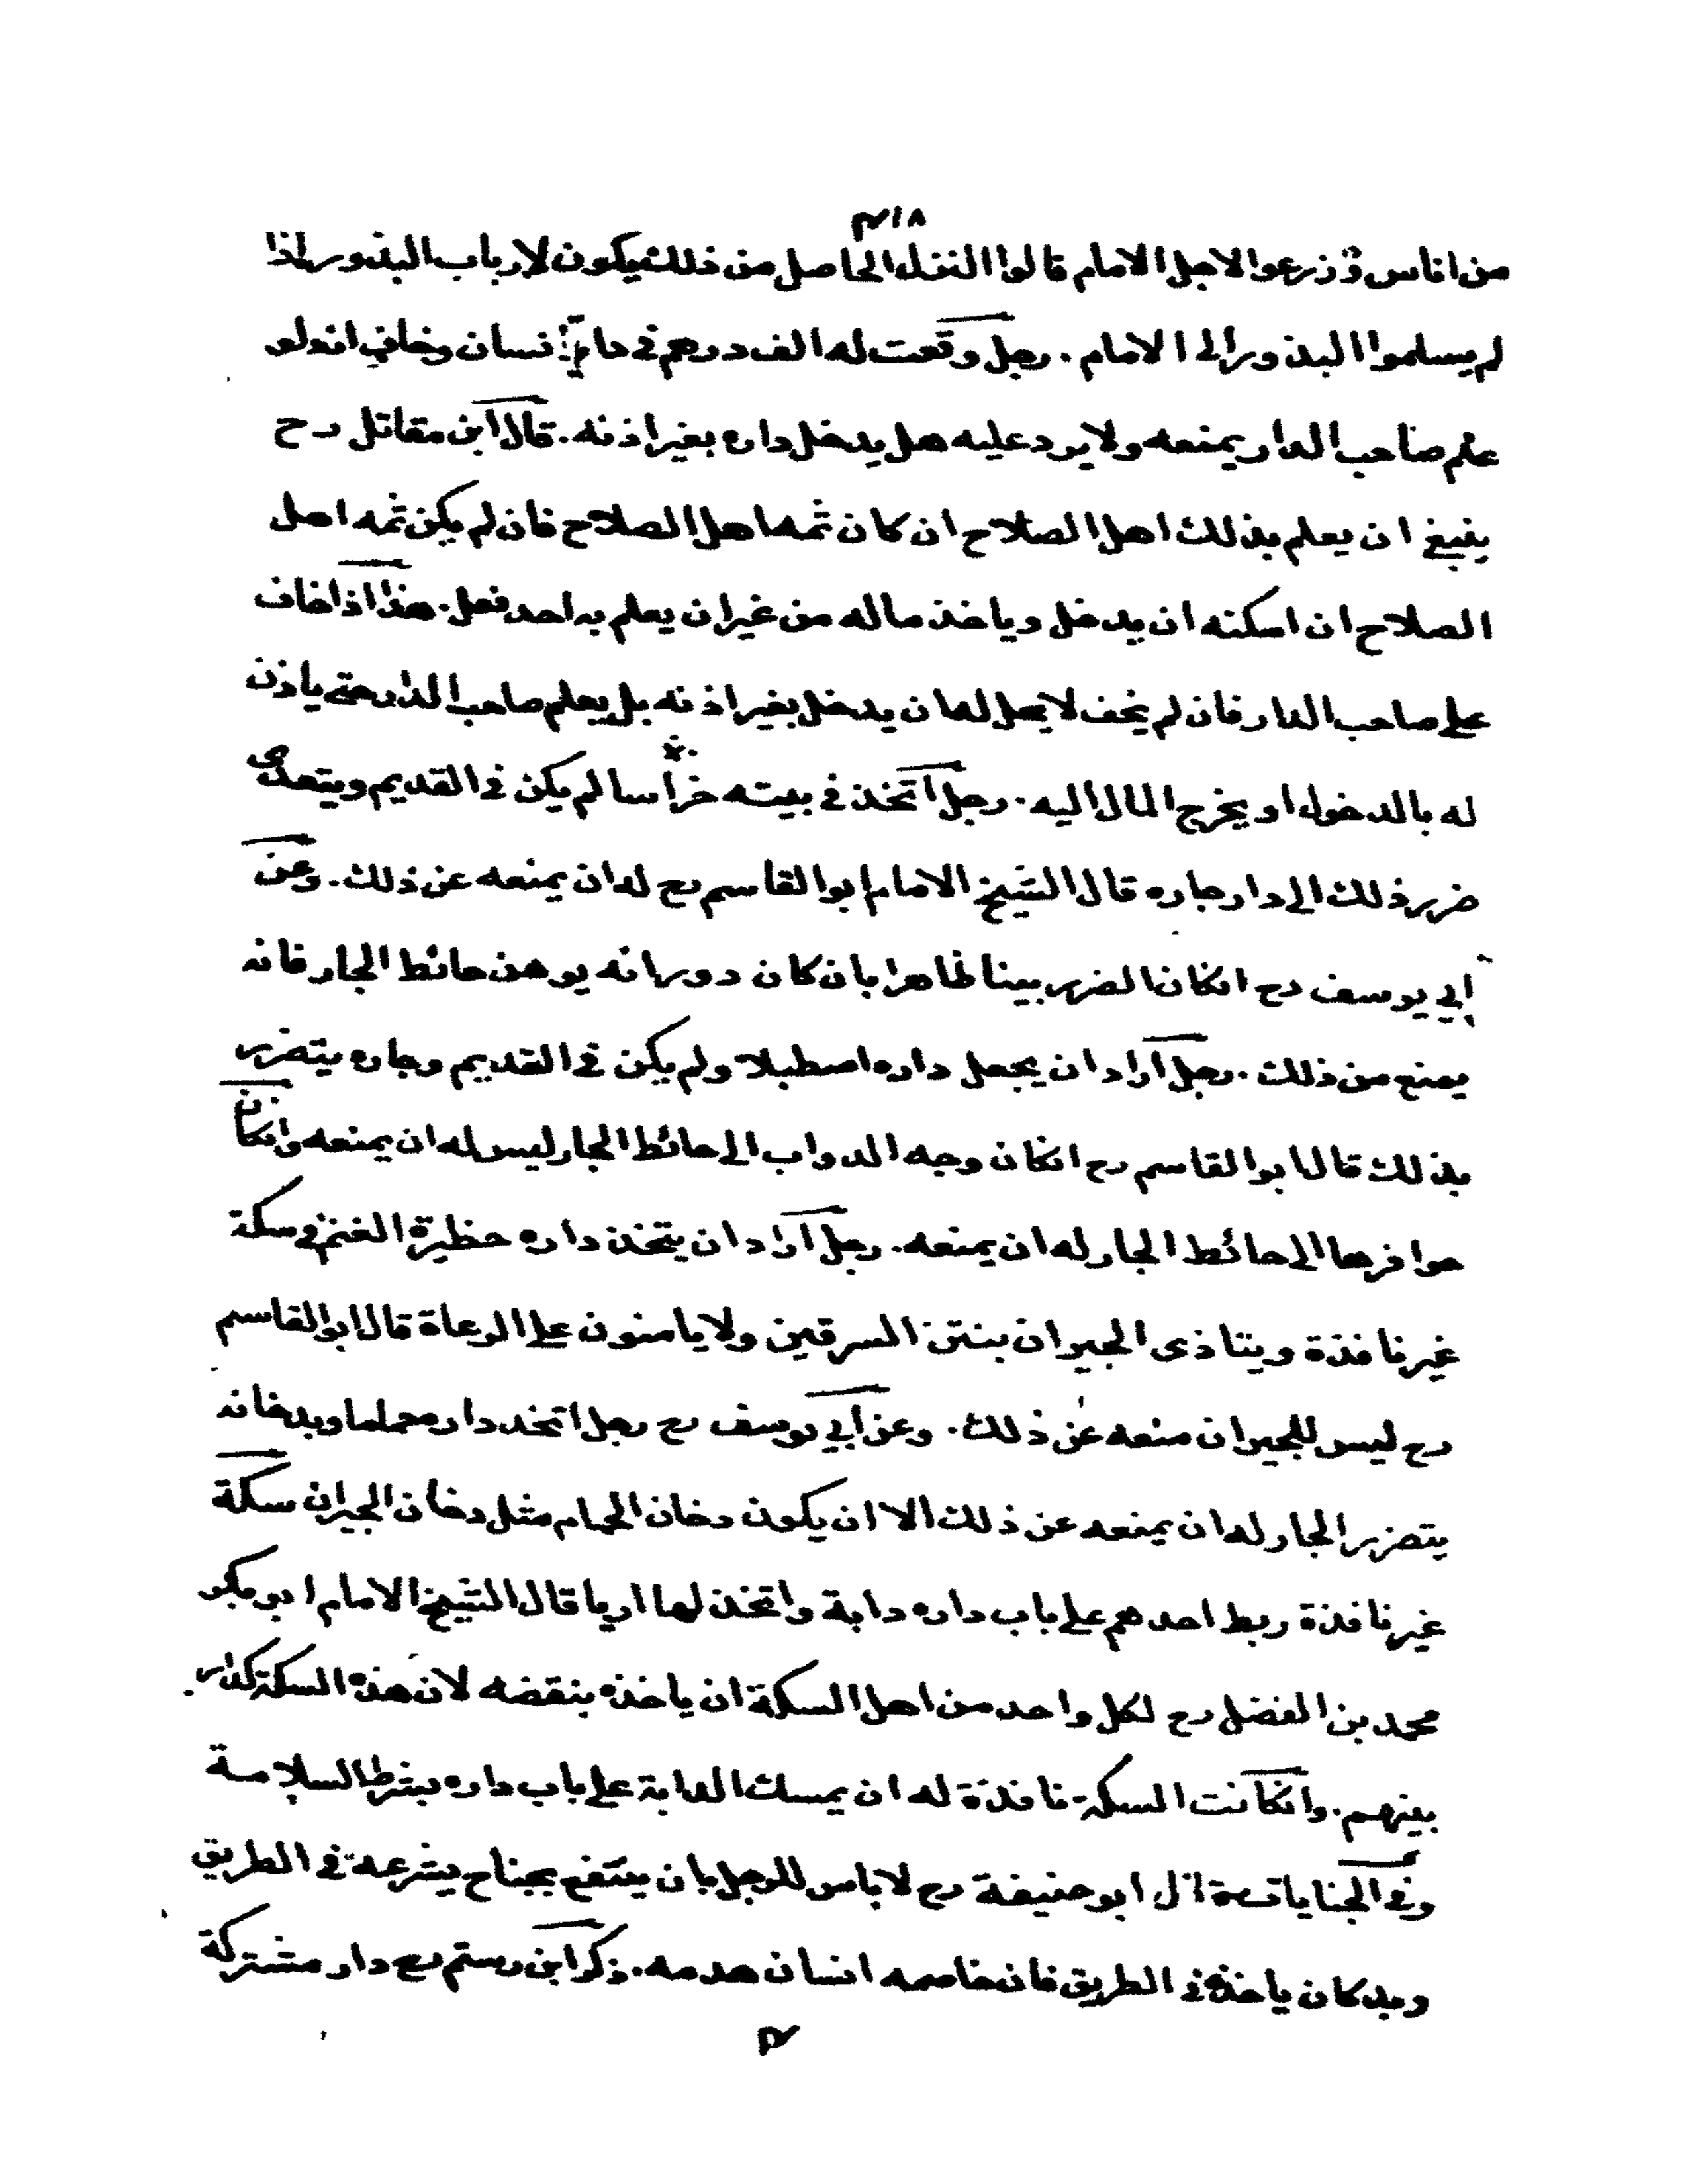 من اناس وزرعوا لاجل الامام قالوا النزل الحاصل من ذلك يكون لارباب البذور اذا
لم يسلموا البذور الى الامام . رجل وقعت له الف درهم فى دار انسان وخاف انه لو
علم صاحب الدار يمنعه ولا يرد عليه هل يدخل داره بغير اذنه . قال ابن مقاتل رح
ينبغى ان يعلم بذلك اهل الصلاح ان كان ثمه اهل الصلاح فان لم يكن ثمه اهل
الصلاح ان امكنه ان يدخل وياخذ ماله من غير ان يعلم به احد فعل . هذا اذا خاف
على صاحب الدار فان لم يخف لا يحل له ان يدخل بغير اذنه بل يعلم صاحب الدار حتى ياذن
له بالدخول او يخرج المال اليه . رجل اتخذ فى بيته خراسا لم يكن فى القديم ويتعدى
ضرر ذلك الى دار جاره قال الشيخ الامام ابو القاسم رح له ان يمنعه عن ذلك . وعن
ابي يوسف رح انكان الضرر بينا ظاهرا بان كان دورانه يوهن حائط الجار فانه
يمنع من ذلك . رجل اراد ان يجعل داره اصطبلا ولم يكن فى القديم وجاره يتضرر
بذلك قال ابو القاسم رح انكان وجه الدواب الى حائط الجار ليس له ان يمنعه وانكان
حوافرها الى حائط الجار له ان يمنعه . رجل اراد ان يتخذ داره حظيرة الغنم فى سكة
غير نافذة ويتاذى الجيران بنتن السرقين ولا يامنون على الرعاة قال ابو القاسم
رح ليس للجيران منعه عن ذلك . وعن ابي يوسف رح رجل اتخذ داره حماما وبدخانه
يتضرر الجار له ان يمنعه عن ذلك الا ان يكون دخان الحمام مثل دخان الجيران سكة
غير نافذة ربط احدهم على باب داره دابة واتخذ لها اريا قال الشيخ الامام ابو بكر
محمد بن الفضل رح لكل واحد من اهل السكة ان ياخذه بنقضه لان هذه السكة كدار
بينهم . وانكانت السكة نافذة له ان يمسك الدابة على باب داره بشرط السلامة
وفى الجنايات قال ابو حنيفة رح لا باس للرجل بان ينتفع بجناح يشرعه فى الطريق
وبدكان ياخذه فى الطريق فان خاصمه انسان هدمه . ذكر ابن رستم رح دار مشتركة